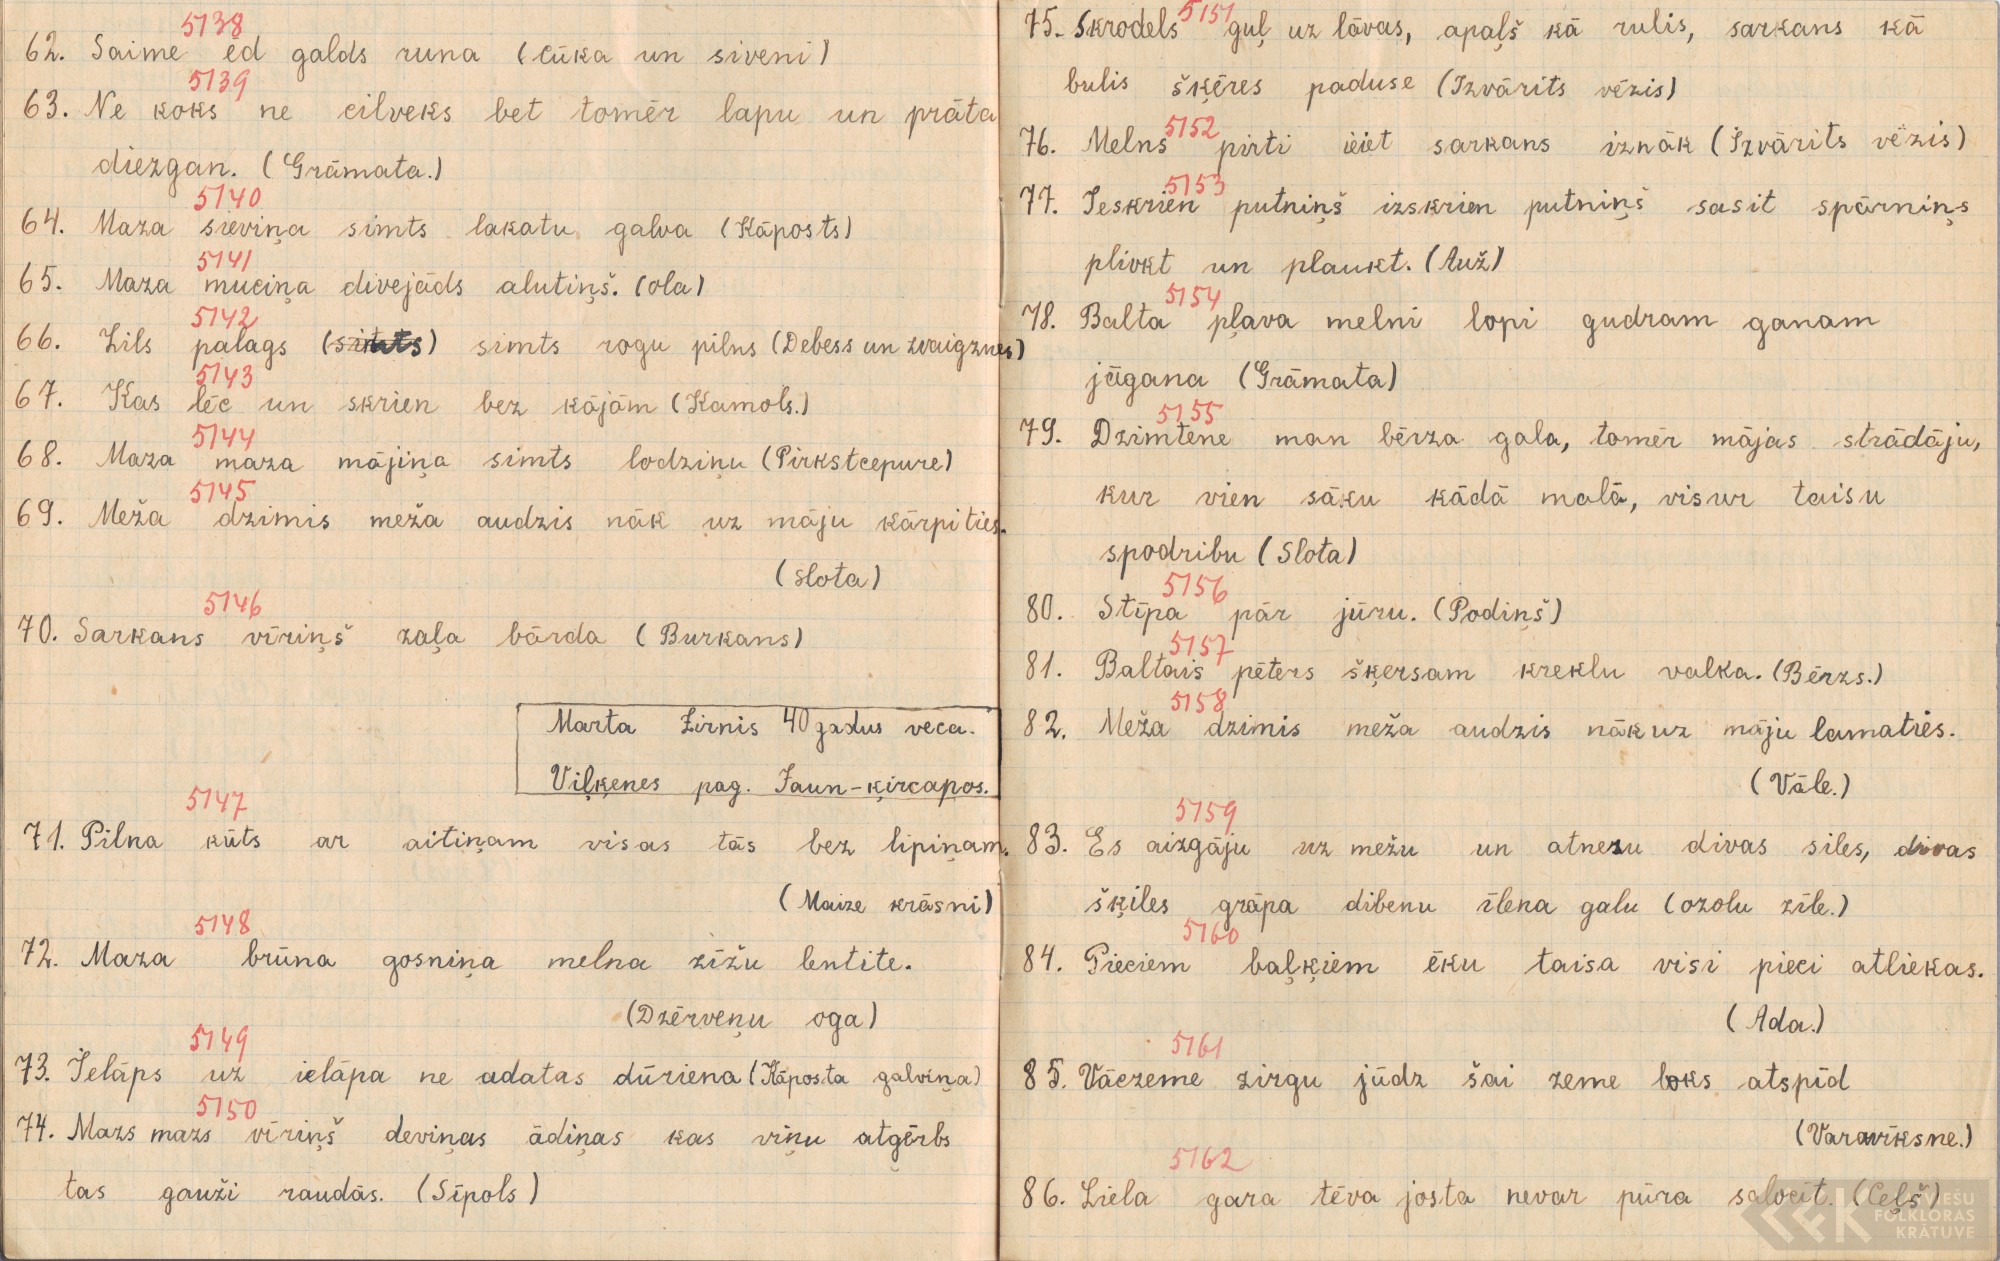 5138
62. Saime ēd galds runa (Cūka un siveni)
5139
63. Ne koks ne cilveks bet tomēr lapu un prāta
diezgan. (Grāmata.)
5140
64. Maza sieviņa simts lakatu galva (Kāposts)
5141
65. Maza muciņa divejāds alutiņš. (ola)
5142
66. Zils palags (simts) simts rogu pilns (Debess un zvaigznes)
5143
67. Kas lēc un skrien bez kājām (Kamols.)
5144
68. Maza maza mājiņa simts lodziņu (Pirkstcepure)
5145
69. Meža dzimis meža audzis nāk uz māju kārpities.
(slota)
5146
70. Sarkans vīriņš zaļa bārda (Burkans)
Marta Zirnis 40 gadus veca.
Viļķenes pag. Jaun-ķircapos.
5147
71. Pilna kūts ar aitiņam visas tās bez lipiņam.
(Maize krāsni)
5148
72. Maza brūna gosniņa melna zīžu lentite.
(Dzērveņu oga)
5149
73. Ielāps uz ielāpa ne adatas dūriena (Kāposta galviņa)
5150
74. Mazs mazs vīriņš deviņas ādiņas kas viņu atģērbs
tas gauži raudās. (Sīpols)
5151
75. Skrodels guļ uz lāvas, apaļš kā rulis, sarkans kā
bulis šķēres paduse (Izvārits vēzis)
5152
76. Melns pirti ieiet sarkans iznāk (Izvārits vēzis)
5153
77. Ieskrien putniņš izskrien putniņš sasit spārniņs
plivkt un plaukt. (Auž)
5154
78. Balta pļava melni lopi gudram ganam
jāgana (Grāmata)
5155
79. Dzimtene man bērza gala, tomēr mājas strādāju,
kur vien sāku kādā malā, visur taisu
spodribu (Slota)
5156
80. Stīpa pār jūru. (Podiņš)
5157
81. Baltais pēters šķersam kreklu valka. (Bērzs.)
5158
82. Meža dzimis meža audzis nāk uz māju lamaties.
(Vāle.)
5159
83. Es aizgāju uz mežu un atnesu divas siles, divas
šķiles grāpa dibenu īlena galu (ozolu zīle.)
5160
84. Pieciem baļķiem ēku taisa visi pieci atliekas.
(Ada.)
5161
85. Vāczeme zirgu jūdz šai zeme loks atspīd
(Varavīksne.)
5162
86. Liela gara tēva josta nevar pūra salocīt. (Ceļš)
LATVIEŠU
FOLKLORAS
KRĀTUVE